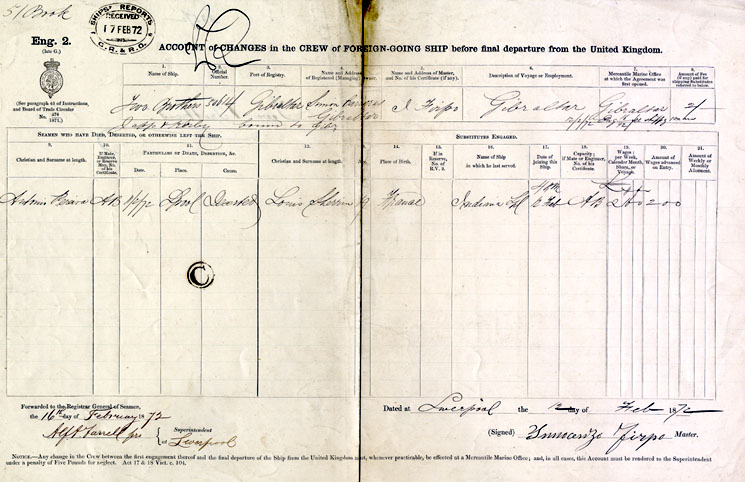 51 Book
SHIPS' REPORTS
RECEIVED
17 FEB 72
G. R. & R. O.
Eng. 2.
(late G.)
ACCOUNT of CHANGES in the CREW of FOREIGN-GOING SHIP before final departure from the United Kingdom.
(See paragraph 43 of Instructions, and Board of Trade Circular No. 474 1871.)
1. Name of Ship.
2. Official Number.
3. Port of Registry.
4. Name and Address of Registered (Managing) Owner.
5. Name and Address of Master, and No. of his Certificate (if any).
6. Description of Voyage or Employment.
7. Mercantile Marine Office at which the Agreement was first opened.
8. Amount of Fee (if any) paid for shipping Substitutes referred to below.
Two Brothers Gibraltar Simon I Firpo Gibraltar Gibraltar 2/
Gibraltar
SEAMEN WHO HAVE DIED, DESERTED, OR OTHERWISE LEFT THE SHIP.
SUBSTITUTES ENGAGED.
9. Christian and Surname at length.
10. If Mate, Engineer, or Reserve Man, No. of his Certificate.
11. PARTICULARS OF DEATH, DESERTION, &c.
Date. Place. Cause.
13. Christian and Surname at length.
14. Place of Birth.
15. If in Reserve, No. of R.V. 2.
16. Name of Ship in which he last served.
17. Date of joining this Ship.
18. Capacity; if Mate or Engineer, No. of his Certificate.
19. Wages per Week, Calendar Month, Share, or Voyage.
20. Amount of Wages advanced on Entry.
21. Amount of Weekly or Monthly Allotment.
Antonio AB Lpool Deserted Louis France Indiana Lpl Feb AB 2 0 0 2 0 0
C
Forwarded to the Registrar General of Seamen,
the 16th day of February 1872
Superintendent
at Liverpool
Dated at Liverpool the day of Feb 1872
(Signed) Firpo Master.
NOTICE.—Any change in the Crew between the first engagement thereof and the final departure of the Ship from the United Kingdom must, whenever practicable, be effected at a Mercantile Marine Office; and, in all cases, this Account must be rendered to the Superintendent
under a penalty of Five Pounds for neglect. Act 17 & 18 Vict. c. 104.